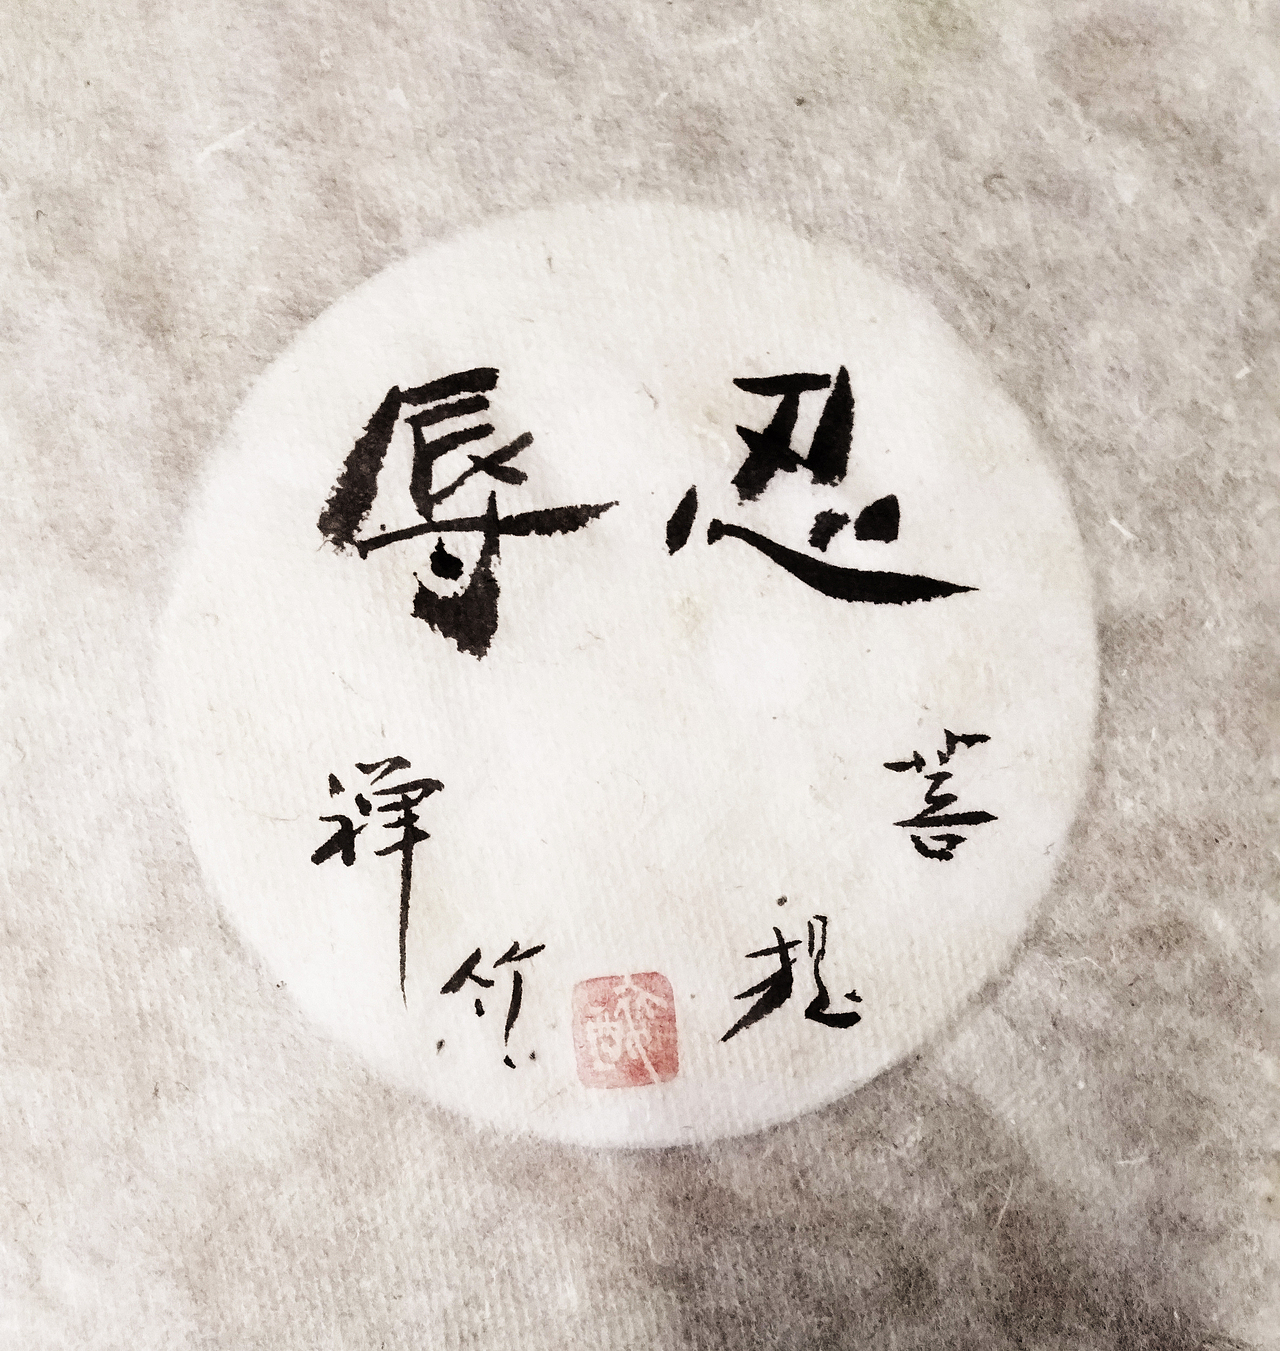 忍辱
菩提
禅竹